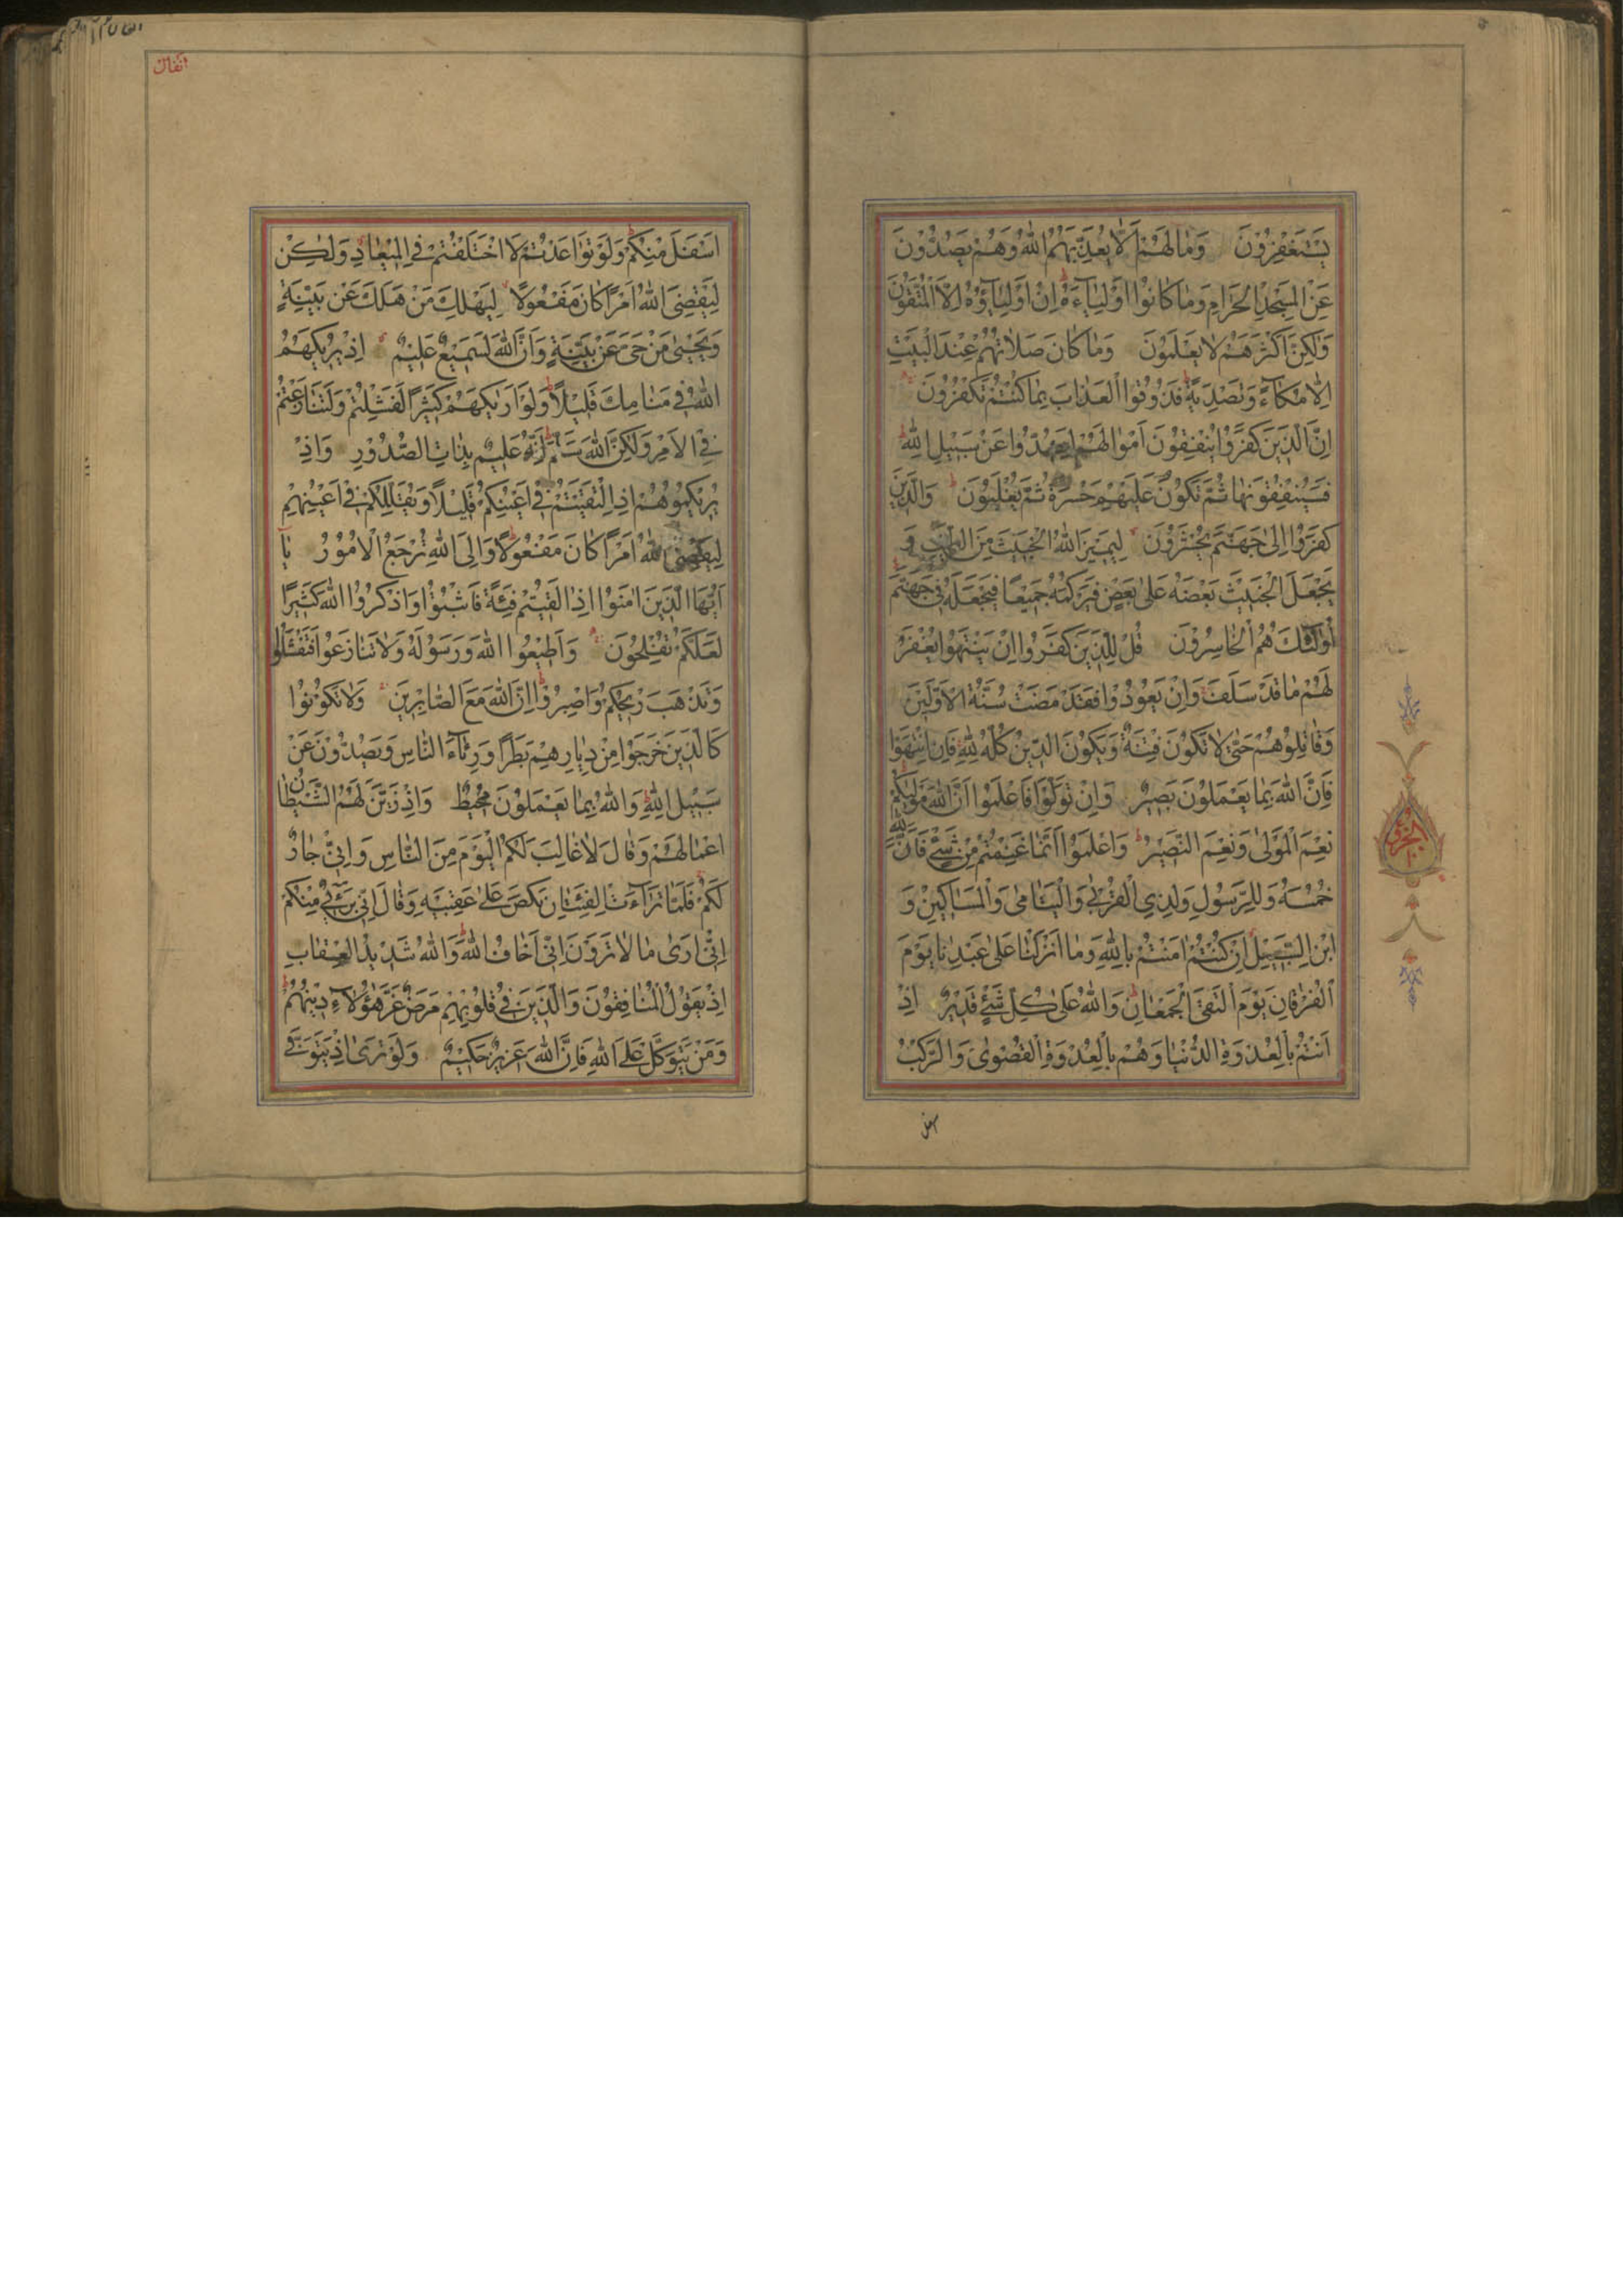 يَسْتَغْفِرُونَ وَمَا لَهُمْ اَلَّا يُعَذِّبَهُمُ اللهُ وَهُمْ يَصُدُّونَ
عَنِ الْمَسْجِدِ الْحَرَامِ وَمَا كَانُوا اَوْلِيَاءَهُ اِنْ اَوْلِيَاؤُهُ اِلَّا الْمُتَّقُونَ
وَلٰكِنَّ اَكْثَرَهُمْ لَا يَعْلَمُونَ وَمَا كَانَ صَلَاتُهُمْ عِنْدَ الْبَيْتِ
اِلَّا مُكَاءً وَتَصْدِيَةً فَذُوقُوا الْعَذَابَ بِمَا كُنْتُمْ تَكْفُرُونَ
اِنَّ الَّذِينَ كَفَرُوا يُنْفِقُونَ اَمْوَالَهُمْ لِيَصُدُّوا عَنْ سَبِيلِ اللهِ
فَسَيُنْفِقُونَهَا ثُمَّ تَكُونُ عَلَيْهِمْ حَسْرَةً ثُمَّ يُغْلَبُونَ وَالَّذِينَ
كَفَرُوا اِلَىٰ جَهَنَّمَ يُحْشَرُونَ لِيَمِيزَ اللهُ الْخَبِيثَ مِنَ الطَّيِّبِ وَ
يَجْعَلَ الْخَبِيثَ بَعْضَهُ عَلَىٰ بَعْضٍ فَيَرْكُمَهُ جَمِيعًا فَيَجْعَلَهُ فِي جَهَنَّمَ
اُولٰئِكَ هُمُ الْخَاسِرُونَ قُلْ لِلَّذِينَ كَفَرُوا اِنْ يَنْتَهُوا يُغْفَرْ
لَهُمْ مَا قَدْ سَلَفَ وَاِنْ يَعُودُوا فَقَدْ مَضَتْ سُنَّةُ الْاَوَّلِينَ
وَقَاتِلُوهُمْ حَتَّىٰ لَا تَكُونَ فِتْنَةٌ وَيَكُونَ الدِّينُ كُلُّهُ لِلهِ فَاِنِ انْتَهَوْا
فَاِنَّ اللهَ بِمَا يَعْمَلُونَ بَصِيرٌ وَاِنْ تَوَلَّوْا فَاعْلَمُوا اَنَّ اللهَ مَوْلٰيكُمْ
نِعْمَ الْمَوْلَىٰ وَنِعْمَ النَّصِيرُ وَاعْلَمُوا اَنَّمَا غَنِمْتُمْ مِنْ شَيْءٍ فَاَنَّ لِلهِ
خُمُسَهُ وَلِلرَّسُولِ وَلِذِي الْقُرْبَىٰ وَالْيَتَامَىٰ وَالْمَسَاكِينِ وَ
ابْنِ السَّبِيلِ اِنْ كُنْتُمْ اٰمَنْتُمْ بِاللهِ وَمَا اَنْزَلْنَا عَلَىٰ عَبْدِنَا يَوْمَ
الْفُرْقَانِ يَوْمَ الْتَقَى الْجَمْعَانِ وَاللهُ عَلَىٰ كُلِّ شَيْءٍ قَدِيرٌ اِذْ
اَنْتُمْ بِالْعُدْوَةِ الدُّنْيَا وَهُمْ بِالْعُدْوَةِ الْقُصْوَىٰ وَالرَّكْبُ
الجزء
١٠
انفال
اَسْفَلَ مِنْكُمْ وَلَوْ تَوَاعَدْتُمْ لَاخْتَلَفْتُمْ فِي الْمِيعَادِ وَلٰكِنْ
لِيَقْضِيَ اللهُ اَمْرًا كَانَ مَفْعُولًا لِيَهْلِكَ مَنْ هَلَكَ عَنْ بَيِّنَةٍ
وَيَحْيَىٰ مَنْ حَيَّ عَنْ بَيِّنَةٍ وَاِنَّ اللهَ لَسَمِيعٌ عَلِيمٌ اِذْ يُرِيكَهُمُ
اللهُ فِي مَنَامِكَ قَلِيلًا وَلَوْ اَرٰيكَهُمْ كَثِيرًا لَفَشِلْتُمْ وَلَتَنَازَعْتُمْ
فِي الْاَمْرِ وَلٰكِنَّ اللهَ سَلَّمَ اِنَّهُ عَلِيمٌ بِذَاتِ الصُّدُورِ وَاِذْ
يُرِيكُمُوهُمْ اِذِ الْتَقَيْتُمْ فِي اَعْيُنِكُمْ قَلِيلًا وَيُقَلِّلُكُمْ فِي اَعْيُنِهِمْ
لِيَقْضِيَ اللهُ اَمْرًا كَانَ مَفْعُولًا وَاِلَى اللهِ تُرْجَعُ الْاُمُورُ يَا
اَيُّهَا الَّذِينَ اٰمَنُوا اِذَا لَقِيتُمْ فِئَةً فَاثْبُتُوا وَاذْكُرُوا اللهَ كَثِيرًا
لَعَلَّكُمْ تُفْلِحُونَ وَاَطِيعُوا اللهَ وَرَسُولَهُ وَلَا تَنَازَعُوا فَتَفْشَلُوا
وَتَذْهَبَ رِيحُكُمْ وَاصْبِرُوا اِنَّ اللهَ مَعَ الصَّابِرِينَ وَلَا تَكُونُوا
كَالَّذِينَ خَرَجُوا مِنْ دِيَارِهِمْ بَطَرًا وَرِئَاءَ النَّاسِ وَيَصُدُّونَ عَنْ
سَبِيلِ اللهِ وَاللهُ بِمَا يَعْمَلُونَ مُحِيطٌ وَاِذْ زَيَّنَ لَهُمُ الشَّيْطَانُ
اَعْمَالَهُمْ وَقَالَ لَا غَالِبَ لَكُمُ الْيَوْمَ مِنَ النَّاسِ وَاِنِّي جَارٌ
لَكُمْ فَلَمَّا تَرَاءَتِ الْفِئَتَانِ نَكَصَ عَلَىٰ عَقِبَيْهِ وَقَالَ اِنِّي بَرِيءٌ مِنْكُمْ
اِنِّي اَرَىٰ مَا لَا تَرَوْنَ اِنِّي اَخَافُ اللهَ وَاللهُ شَدِيدُ الْعِقَابِ
اِذْ يَقُولُ الْمُنَافِقُونَ وَالَّذِينَ فِي قُلُوبِهِمْ مَرَضٌ غَرَّ هٰؤُلَاءِ دِينُهُمْ
وَمَنْ يَتَوَكَّلْ عَلَى اللهِ فَاِنَّ اللهَ عَزِيزٌ حَكِيمٌ وَلَوْ تَرَىٰ اِذْ يَتَوَفَّى